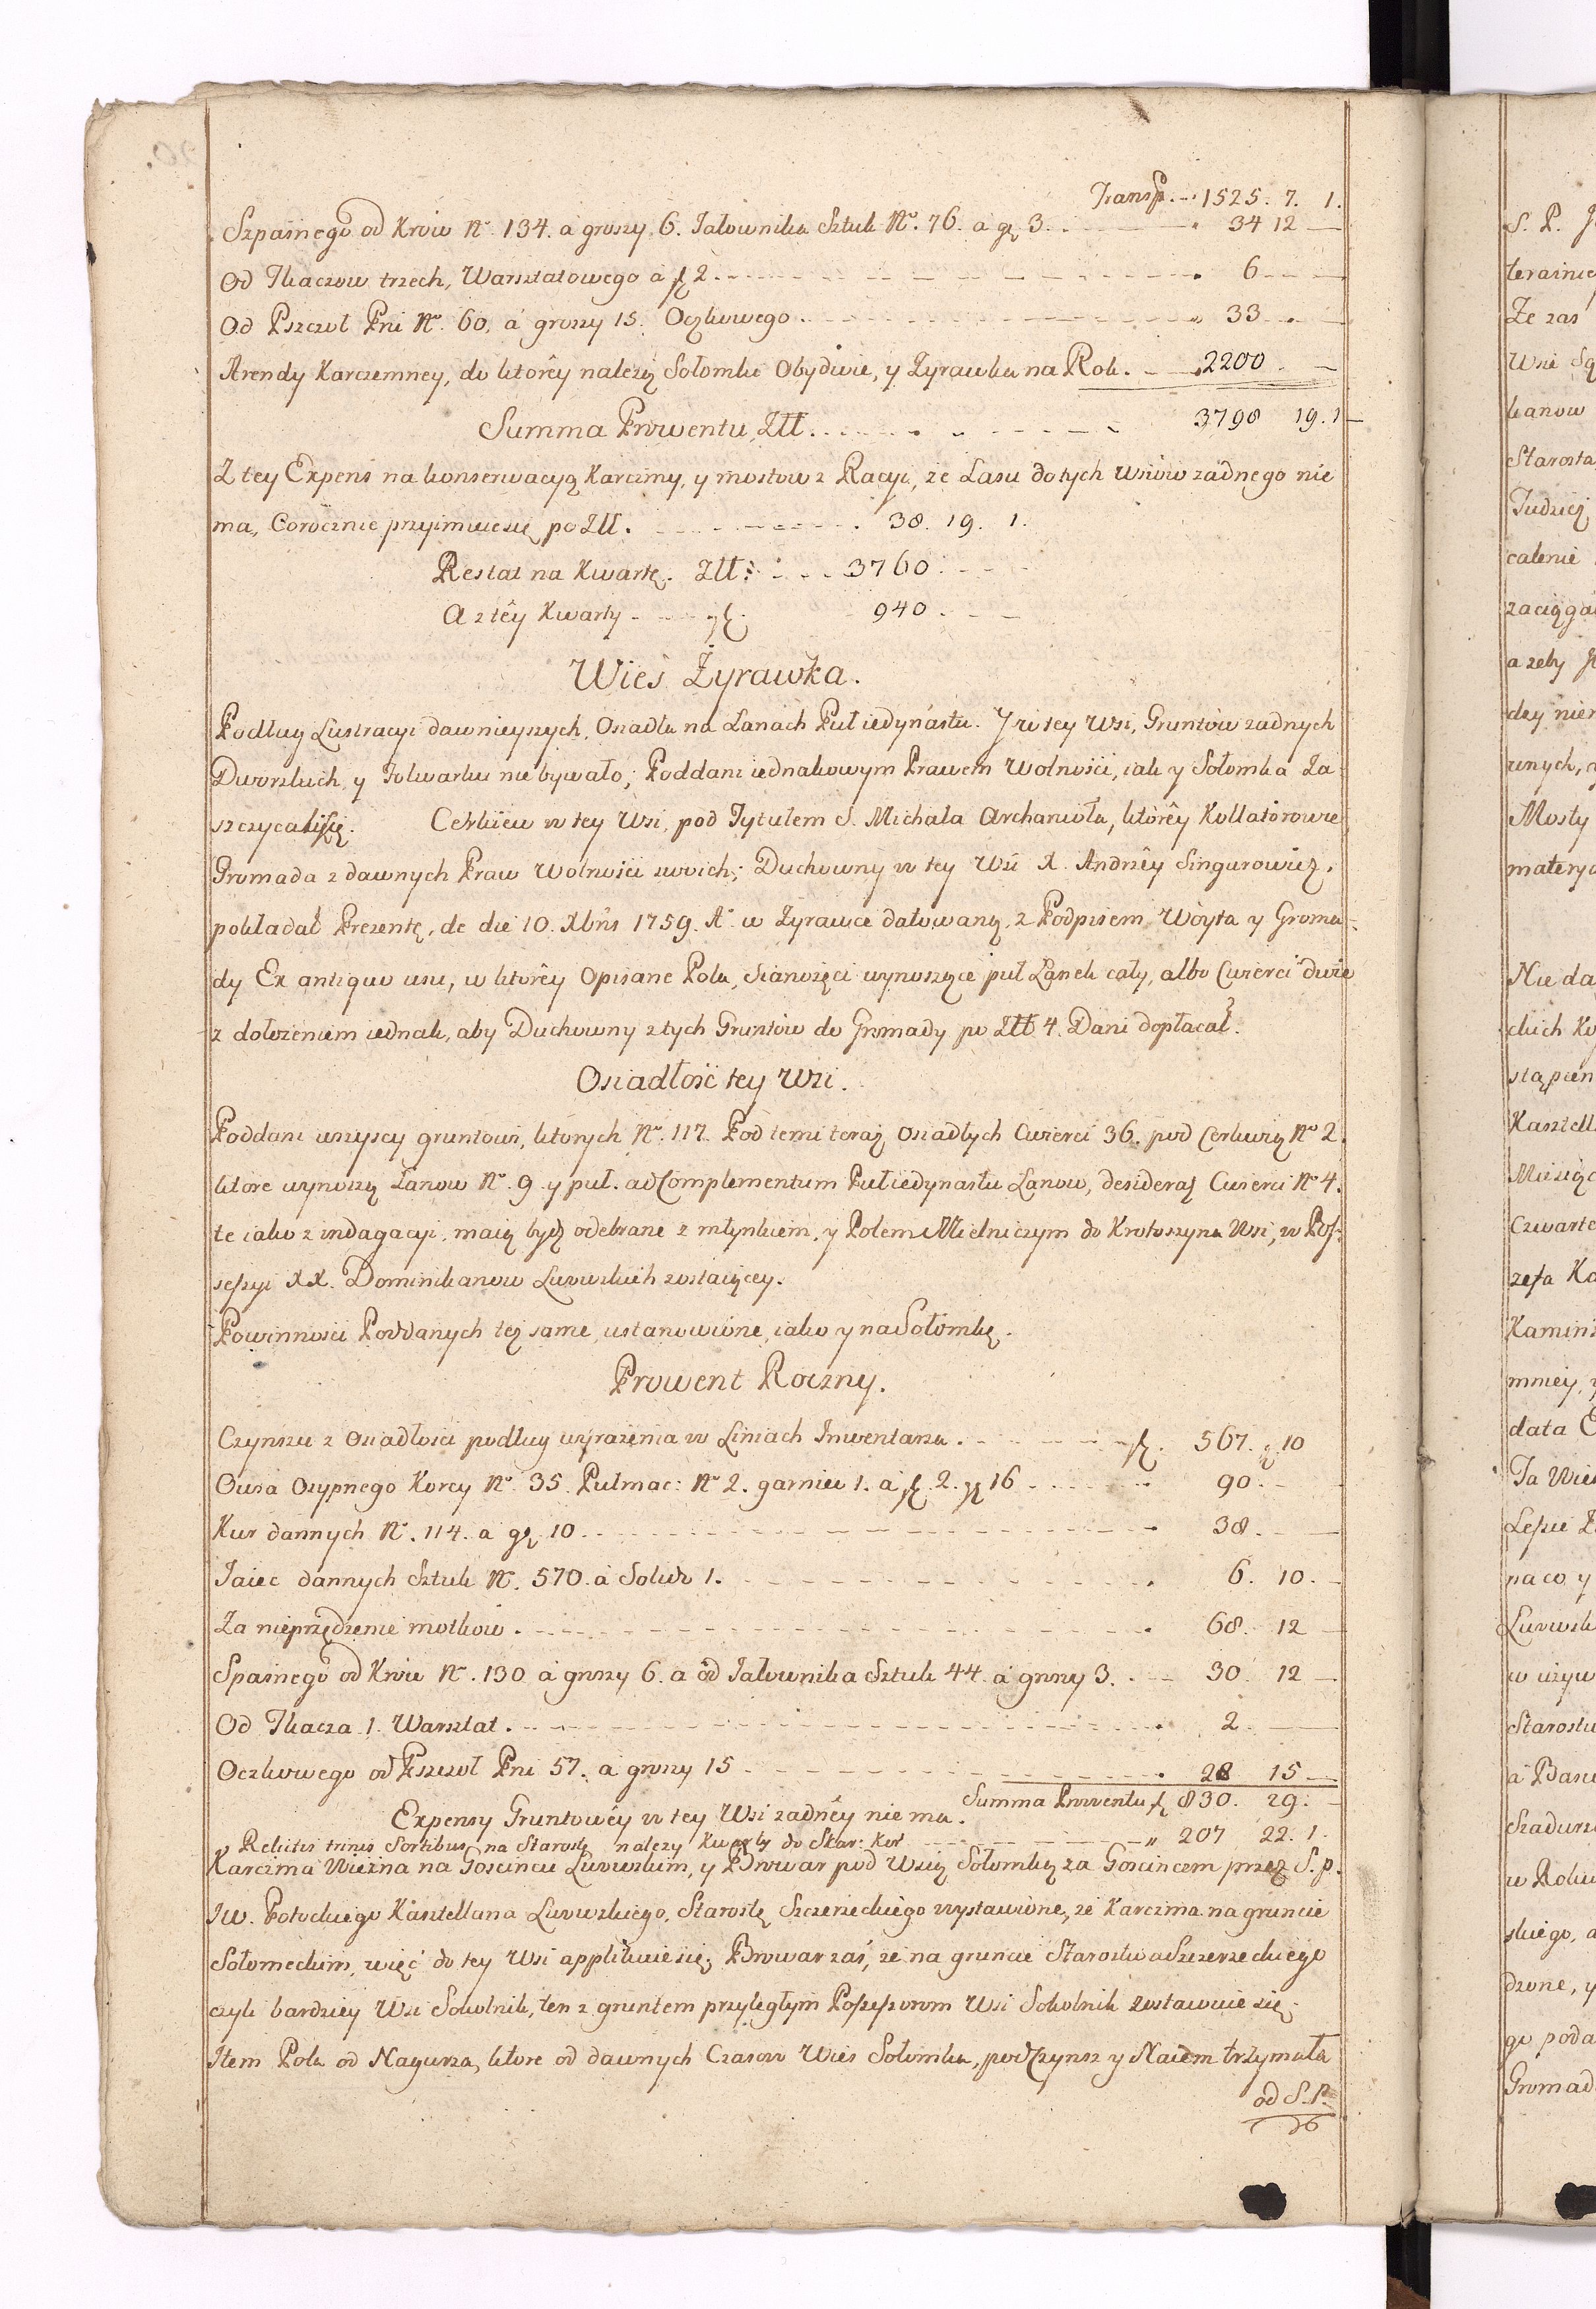 Transp. 1525. 7. 1.
Szpasnego od Krów Nº 134. a groszy 6. Jałownika Sztuk Nº. 76. a gr 3. 34 12
Od Tkaczow trzech, Warsztatowego a fl 2. 6
Od Pszczoł Pni Nº. 60. á groszy 15. Oczkowego 33
Arendy Karczemney, do ktorêy należą Sołomki Obydwie, y Żyrawka na Rok. 2200
Summa Prowentu Złł. 3798 19. 1
Z tey Expens na konserwacyą Karczmy, y mostow z Racyi, że Lasu do tych Wsiów żadnego nie
ma, Corocznie przyimuie się po Złł. 38. 19. 1.
Restat na Kwartę. Złł: 3760
A z têy Kwarty fl. 940.
Wies Żyrawka.
Podług Lustracyi dawnieyszych, Osiadła na Łanach Puł iedynastu. J w tey Wsi, Gruntów żadnych
Dworskich, y Folwarku nie bywało; Poddani iednakowym Prawem Wolności, iak y Sołomka Za
szczycali się. Cerkiew w tey Wsi, pod Tytułem S. Michała Archanioła, którêy Kollatorowie
Gromada z dawnych Praw Wolności swoich; Duchowny w tey Wsi X. Andrzêy Singurowicz,
pokładał Prezentę, de die 10. Xbris 1759. Aº w Żyrawce datowaną, z Podpisem Wóyta y Groma-
dy Ex antiquo usu, w którêy Opisane Pola, Sianożęci wynoszące puł Łanek cały, albo Cwierci dwie
z dołożeniem iednak, aby Duchowny z tych Gruntów do Gromady po Złł 4. Dani dopłacał.
Osiadłość tey Wsi.
Poddani wszyscy gruntowi, ktorych Nº. 117. Pod temi teraz osiadłych Cwierci 36. pod Cerkwią Nº 2.
ktore wynoszą Łanow Nº. 9. y puł. ad Complementum Puł iedynastu Łanow, desiderat Cwierci Nº 4.
te iako z indagacyi, maią bydz odebrane z młynkiem, y Polem Mielniczym do Krotoszyna Wsi, w Pos-
sessyi XX. Dominikanow Lwowskich zostaiącey.
Powinnosci Poddanych też same, ustanowione, iako y na Sołomkę.
Prowent Roczny.
Czynszu z Osiadłosci podług wyrażenia w Liniach Inwentarza. fl. 567. gr 10
Owsa Osypnego Korcy Nº. 35. Pułmac: Nº 2. garniec 1. a fl 2. gr 16 90.
Kur dannych Nº. 114. a gr 10. 38.
Jaiec dannych Sztuk Nº. 570. a Solid 1. 6. 10.
Za nieprzędzenie motkow. 68. 12
Spasnego od Krów Nº. 130 á groszy 6. a od Jałownika Sztuk 44. á groszy 3. 30 12
Od Tkacza 1. Warsztat. 2.
Oczkowego od Pszczoł Pni 57. a groszy 15 28 15
Summa Prowentu fl 830. 29.
Expensy Gruntowêy w tey Wsi żadnêy nie ma.
Relictis trinis Sortibus na Starostę należy Kwarty do Skar: Kor. 207 22. 1.
Karczma Wiezna na Goscincu Lwowskim, y Browar pod Wsią Sołomką za Goscincem przez S. p.
Jw. Potockiego Kasztellana Lwowskiego, Starostę Szczerzeckiego wystawione, że Karczma na gruncie
Sołomeckim, więć do tey Wsi applikuie się; Browar zaś, że na gruncie Starostwa Szczerzeckiego
czyli bardziey Wsi Sokolnik, ten z gruntem przyległym Possessorom Wsi Sokolnik zostawuie się.
Item Pola od Nagurza, ktore od dawnych Czasow Wies Sołomka, pod Czynsz y Naiem trzymała
od S. P.